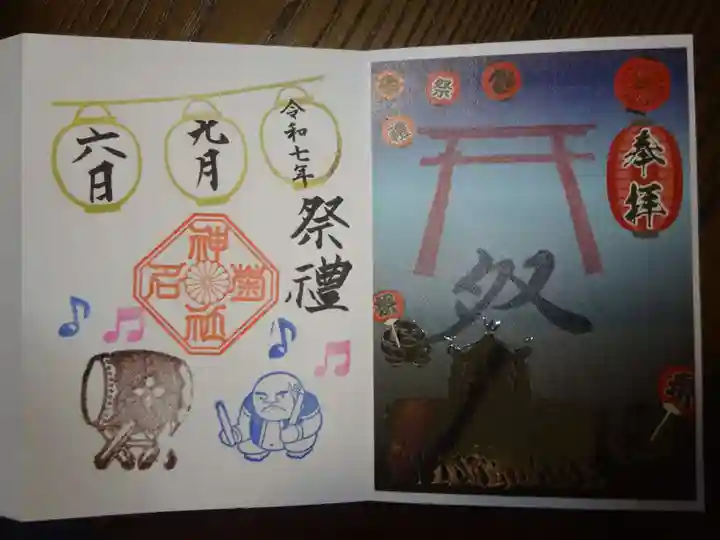 令和七年
九月
六日
祭禮
菊名
神社
奉拝
祭
祭